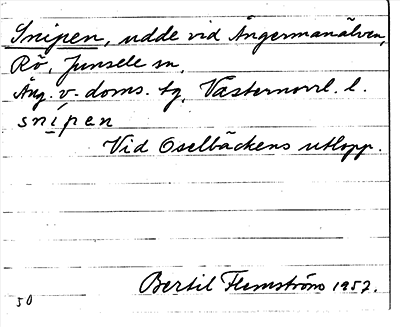 Snipen, udde vid Ångermanälven,
Rö, Junsele sn,
Ång. v. doms. tg, Västernorrl. l.
snípen
Vid Oselbäckens utlopp.
Bertil Flemström 1957.
50